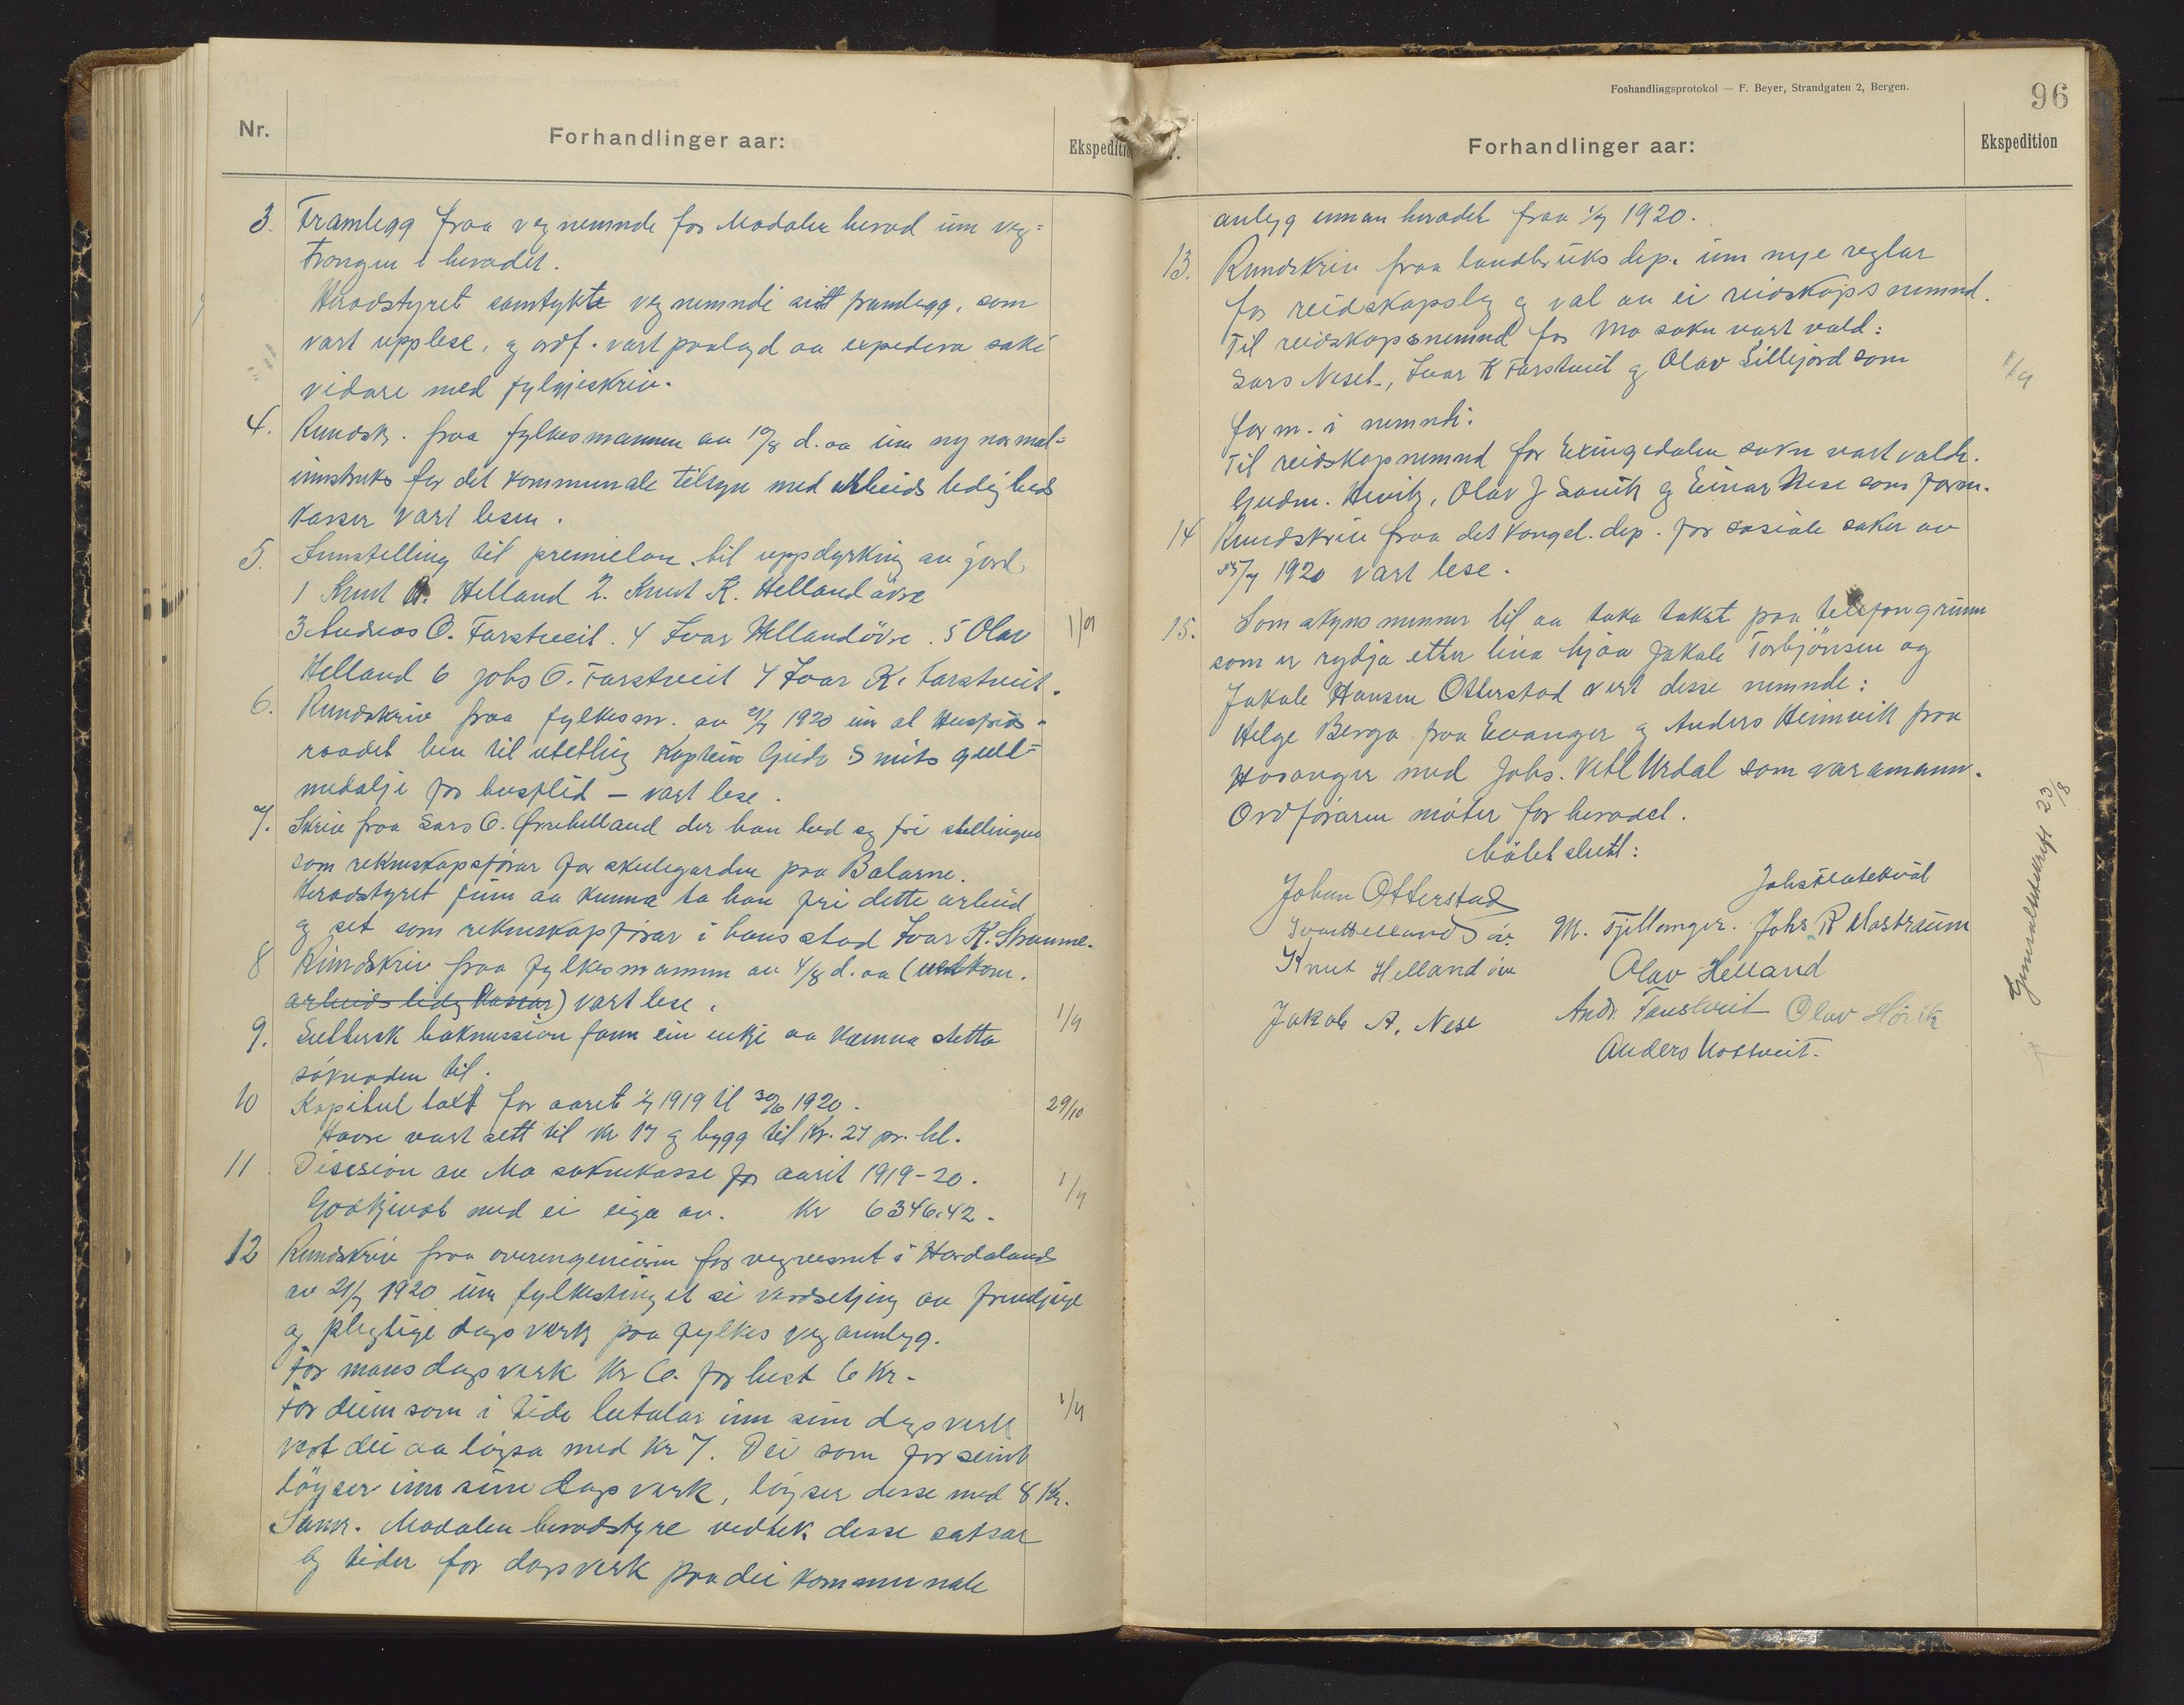 Nr.
Forhandlinger aar:
Ekspedition
3. Framlegg fraa vegnemnde for Modalen herad um veg=
trongen i heradet.
Heradstyret samtykte vegnemndi sitt framlegg, som
vart upplese, og ordf. vart paalagd aa expedera saki
vidare med fylgjeskriv.
4. Rundsk. fraa fylkesmannen av 10/8 d. aa um ny normal=
innstruks for det kommunale tilsyn med arbeids ledigheds
kasser vart lesen.
5. Innstelling til premielaan til uppdyrking av jord.
1 Knut Helland 2. Knut K. Helland övre
3 Andreas O. Farstveit. 4 Ivar Hellandövre. 5 Olav
Helland 6 Johs O. Farstveit 7 Ivar K. Farstveit.
1/9
6. Rundskriv fraa fylkesm. av 21/7 1920 um at Husflids-
raadet hev til utetling Kaptein Guido Smits gull=
medalje for husflid – vart lese.
7. Skriv fraa Lars O. Øvrehelland der han bed seg fri stellingen
som rekneskapsförar for skulegarden paa Balarne.
Heradstyret finn aa kunna ta han fri dette arbeid
og set som rekneskapförar i hans stad Ivar K. Straume.
8 Rundskriv fraa fylkesmannen av 4/8 d. aa (vedkom.
arbeidsledig kassar) vart lese.
9. Sulbersk koknession fann ein inkje aa kunna stetta
söknaden til.
1/9
10 Kapitul takst for aaret 1/7 1919 til 30/6 1920.
Havre vart sett til kr 17 og bygg til Kr. 27 pr. hl.
29/10
11. Disision av Mo soknekasse for aarit 1919-20.
Godkjend med ei eiga av. Kr 6346.42.
1/9
12 Rundskriv fraa overingeniören for vegvesenet i Hordaland
av 21/7 1920 um fylkestinget si verdsetjing av friviljuge
og plegtige dagsverk paa fylkes veganlegg.
For mans dagsverk Kr 6. for hest 6 Kr.
For deim som i tide betalar inn sine dagsverk
vert dei aa löysa med Kr 7. Dei som for seint
löyser inn sine dagsverk, löyser desse med 8 Kr.
1/9
Samr. Modalen heradstyre vedtek desse satsar
og tider for dagsverk paa dei kommunale
Foshandlingsprotokol — F. Beyer, Strandgaten 2, Bergen.
96
Forhandlinger aar:
Ekspedition
anlegg innan heradet fraa 1/7 1920.
13. Rundskriv fraa landbruks dep. um nye reglar
for reidskapslag og val av ei reidskapsnemnd.
Til reidskapsnemnd for Mo sokn vart vald:
Lars Neset, Ivar K Farstveit og Olav Lillejord som
form. i nemndi.
1/9
Til reidskapnemnd for Exingedalen sokn vart valde.
Gudm. Hövik, Olav J Lavik og Einar Nese som form.
14 Rundskriv fraa det kongel. dep. for sosiale saker av
15/7 1920 vart lese.
15. Som skynsmenner til aa taka takst paa telefongrunn
som er rydja etter lina hjaa Jakob Torbjörnsen og
Jakob Hansen Otterstad vert desse nemnde:
Helge Berge fraa Evanger og Anders Heimvik fraa
Hosanger med Johs. Vetl Urdal som varamann.
Ordföraren möter for heradet.
Mötet slutt:
Johan Otterstad
Ivar Helland öv. M. Fjellanger. Johs R Mostraum
Knut Helland öv Olav Helland
Jakob A. Nese Andr. Farstveit Olav Hövik
Anders Nottveit.
Gjenaltutskrift 23/8